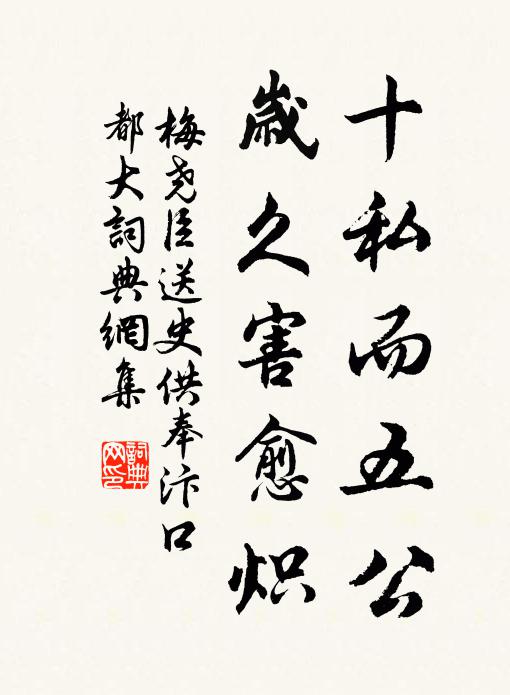 十私而五公
歲久害愈炽
梅尧臣送史供奉汴口
都大詞典網集
詞典
网印